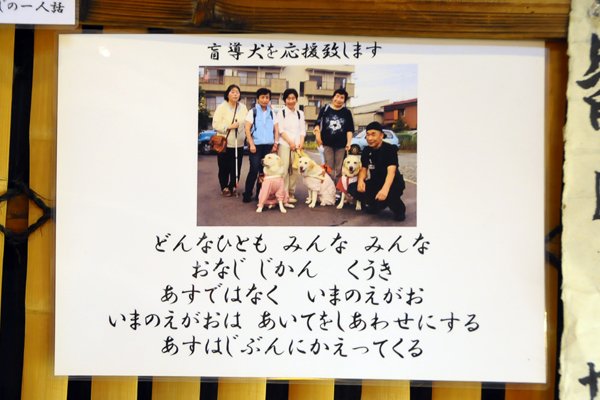 の一人話
盲導犬を応援致します
どんなひとも みんな みんな
おなじ じかん くうき
あすではなく いまのえがお
いまのえがおは あいてをしあわせにする
あすはじぶんにかえってくる